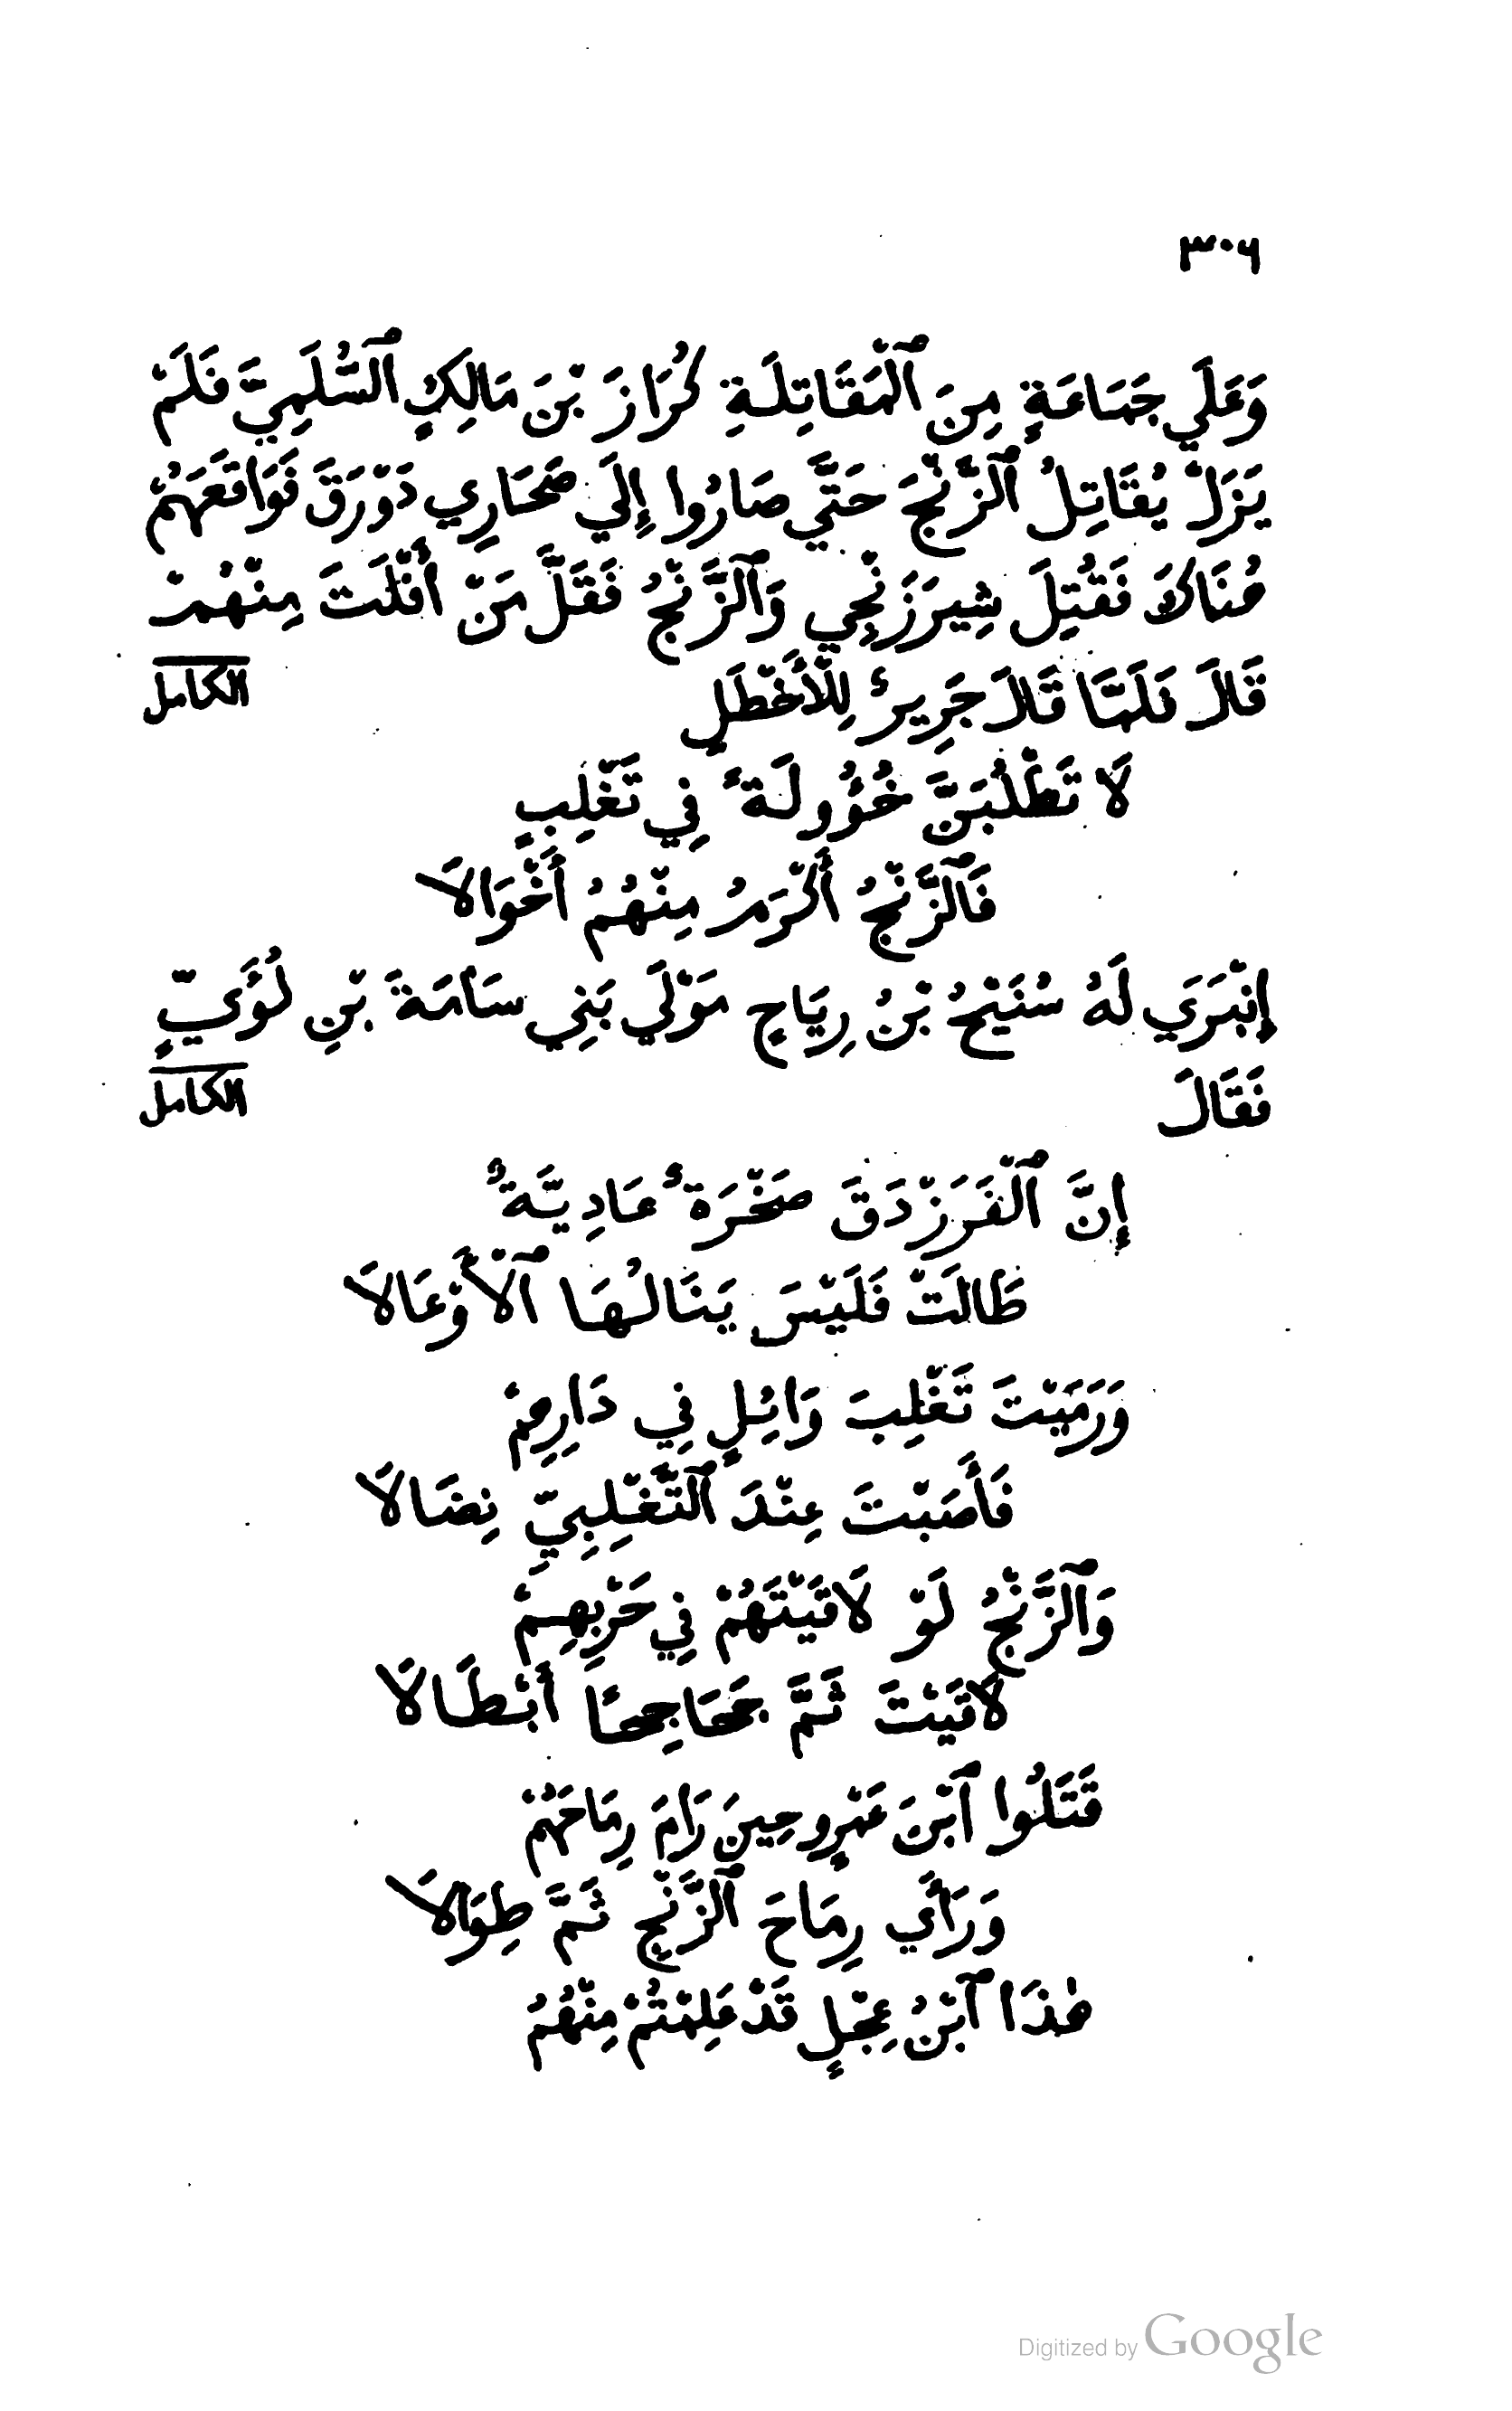 ٣٠٦
وَعَلَي جَمَاعَةٍ مِنَ ٱلْمُقَاتِلَةِ كُرَازَ بْنَ مَالِكٍ ٱلسُّلَمِيَّ فَلَمْ
يَزَلْ يُقَاتِلُ ٱلزَّنْجَ حَتَّي صَارُوا إِلَي صَحَارِي دَوْرَقَ فَوَاقَعَهُمْ
هُنَاكَ فَقُتِلَ شِيرَزَنْجِي وَٱلزَّنْجُ فَقَلَّ مَنْ أَفْلَتَ مِنْهُمْ
قَالَ فَلَمَّا قَالَ جَرِيرٌ لِلْأَخْطَلِ
الكامل
لَا تَطْلُبَنَّ خُؤُولَةً فِي تَغْلِبٍ
فَٱلزَّنْجُ أَكْرَمُ مِنْهُمُ أَخْوَالَا
إِنْبَرَي لَهُ سُنَيْحُ بْنُ رِيَاحٍ مَوْلَي بَنِي سَامَةَ بْنِ لُؤَيٍّ
فَقَالَ
الكامل
إِنَّ ٱلْفَرَزْدَقَ صَخْرَةٌ عَادِيَّةٌ
طَالَتْ فَلَيْسَ يَنَالُهَا ٱلْأَوْعَالَا
وَرَمَيْتَ تَغْلِبَ وَائِلٍ فِي دَارِهِمْ
فَأَصَبْتَ عِنْدَ ٱلتَّغْلِبِيِّ نِضَالَا
وَٱلزَّنْجُ لَوْ لَاقَيْتَهُمْ فِي حَرْبِهِمْ
لَاقَيْتَ ثَمَّ جَحَاجِحًا أَبْطَالَا
قَتَلُوا ٱبْنَ عَمْرٍو حِينَ رَامَ رِمَاحَهُمْ
وَرَأَي رِمَاحَ ٱلزَّنْجِ ثَمَّ طِوَالَا
هٰذَا ٱبْنُ عِجْلٍ قَدْ عَلِمْتُمْ مِنْهُمُ
Digitized by Google